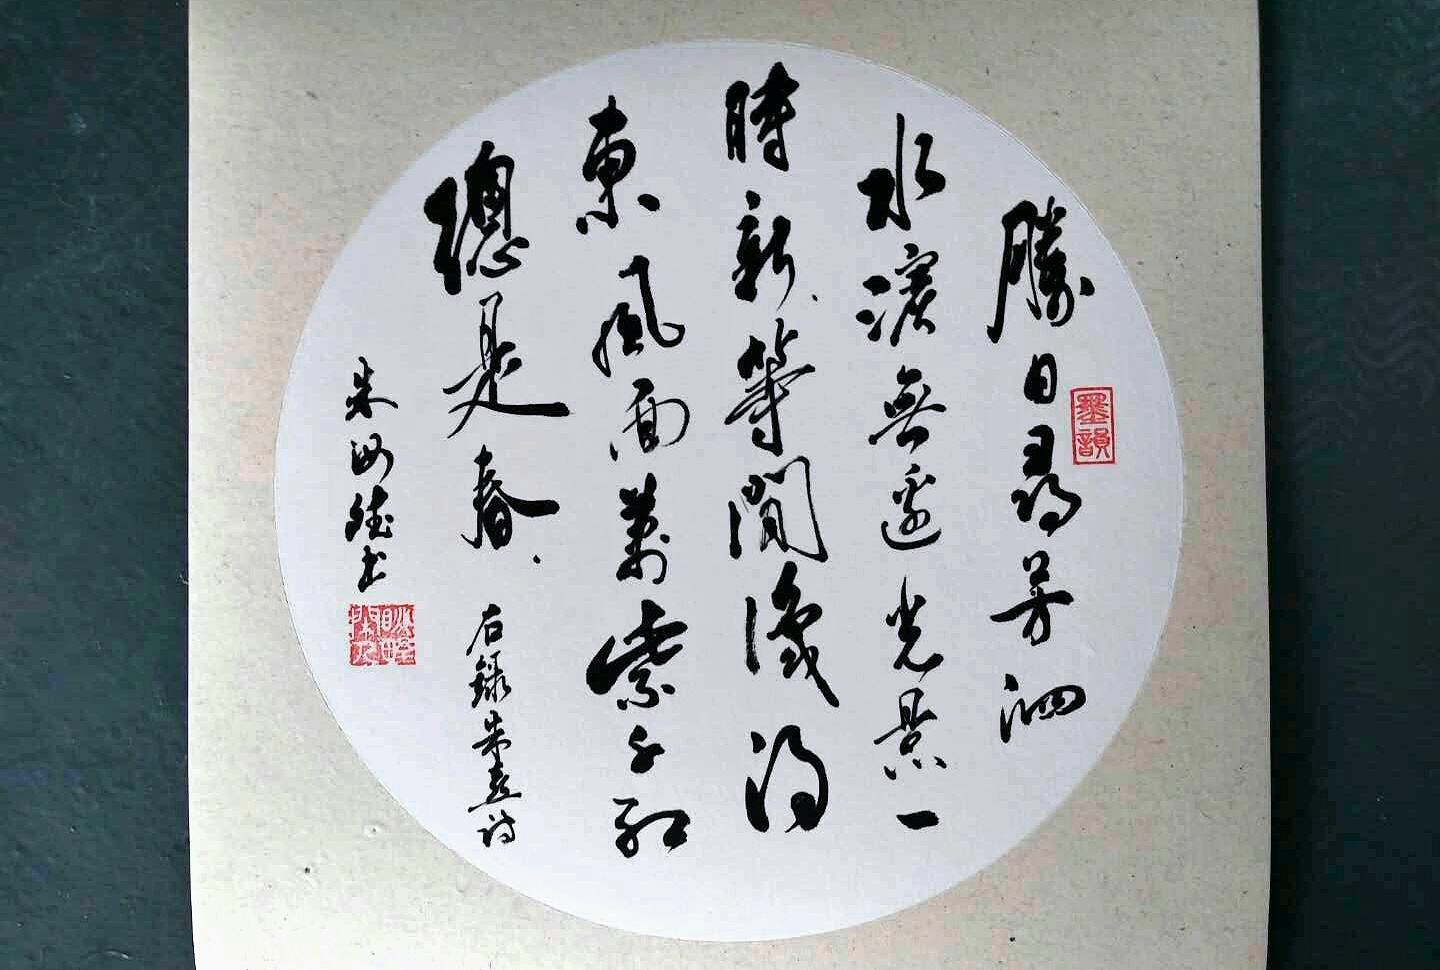 勝日尋芳泗
墨韻
水濱無邊光景一
時新等閒識得
東風面萬紫千紅
總是春
右錄朱熹詩
朱汝書